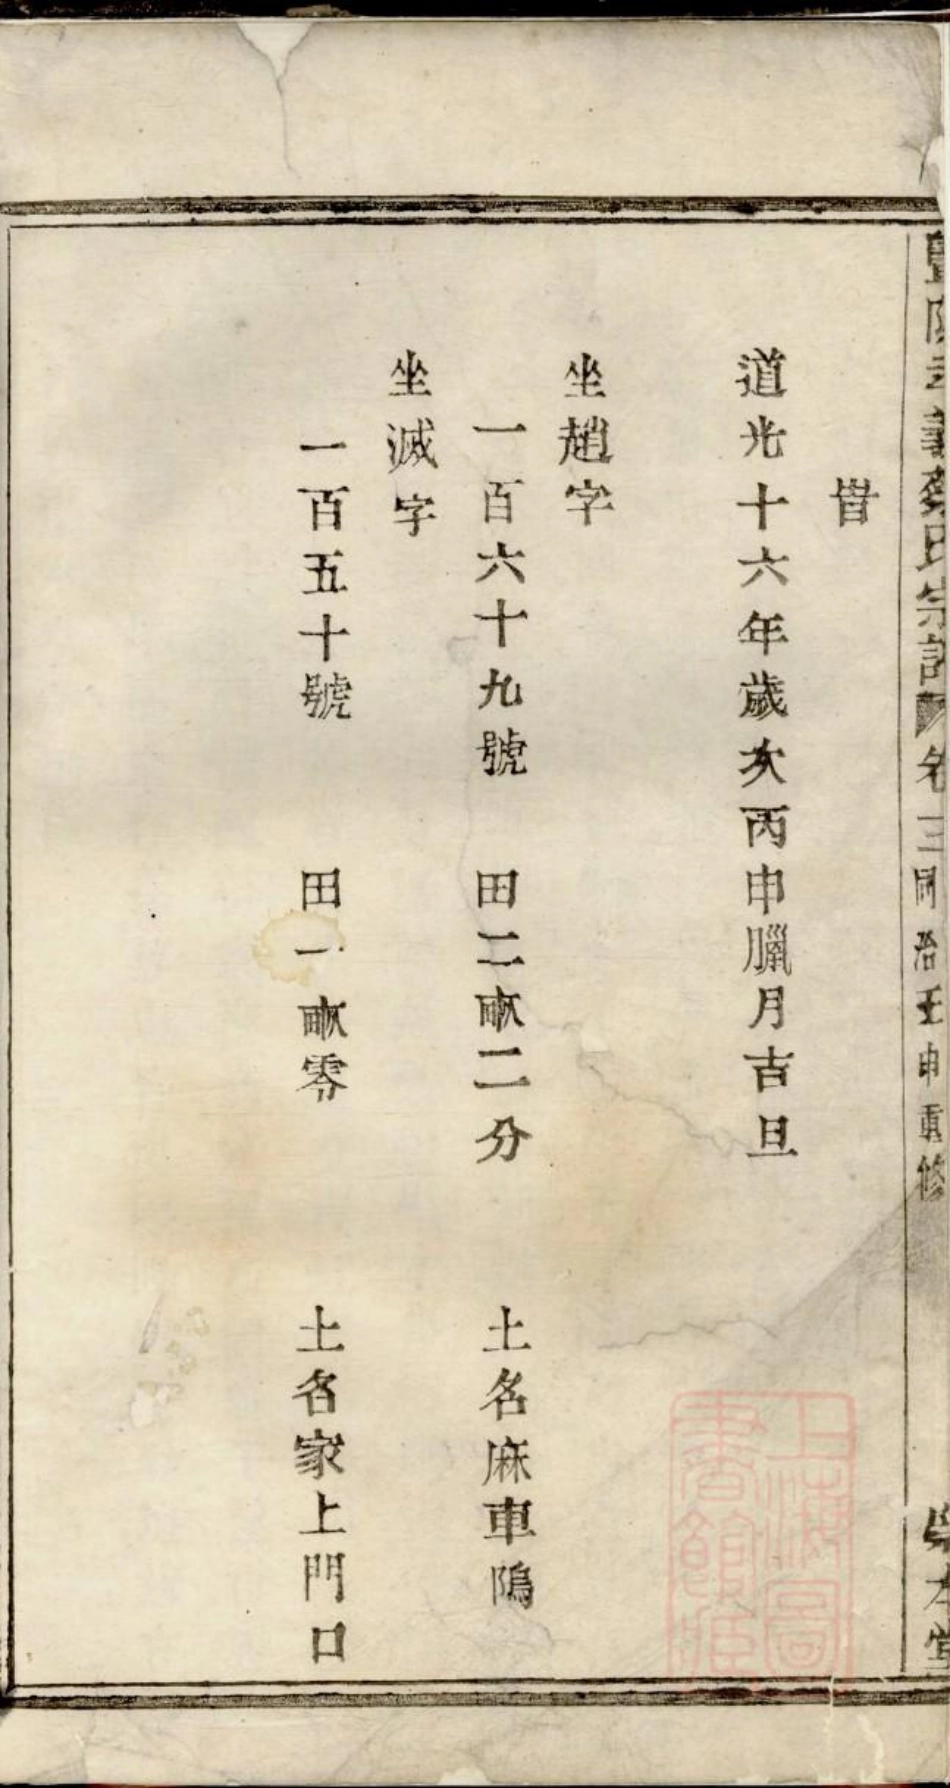 宗譜 卷三 同治壬申重修 本堂
旹
道光十六年歲次丙申臘月吉旦
坐趙字
一百六十九號 田二畝二分 土名麻車隖
坐滅字
一百五十號 田一畝零 土名家上門口
上海圖書館藏